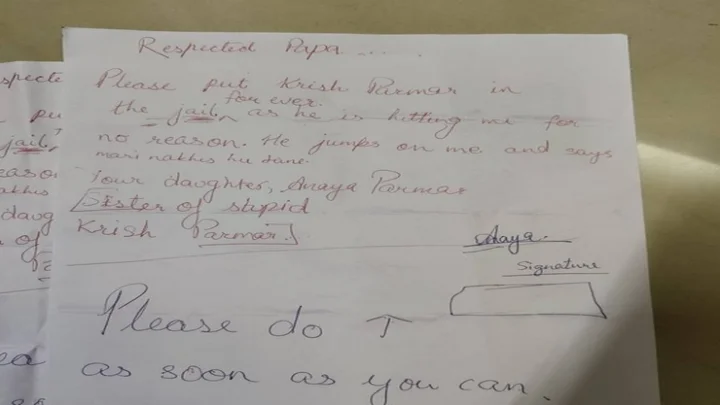 Respected Papa.....
Please put Krish Parmar in
for ever.
the jail, as he is hitting me for
no reason. He jumps on me and says
mari nakhis hu tane.
Your daughter, Anaya Parmar
[Sister of stupid
Krish Parmar.]
Anaya.
Signature
Please do ↑
as soon as you can.
specte
pu
jail,
easo
daug
of